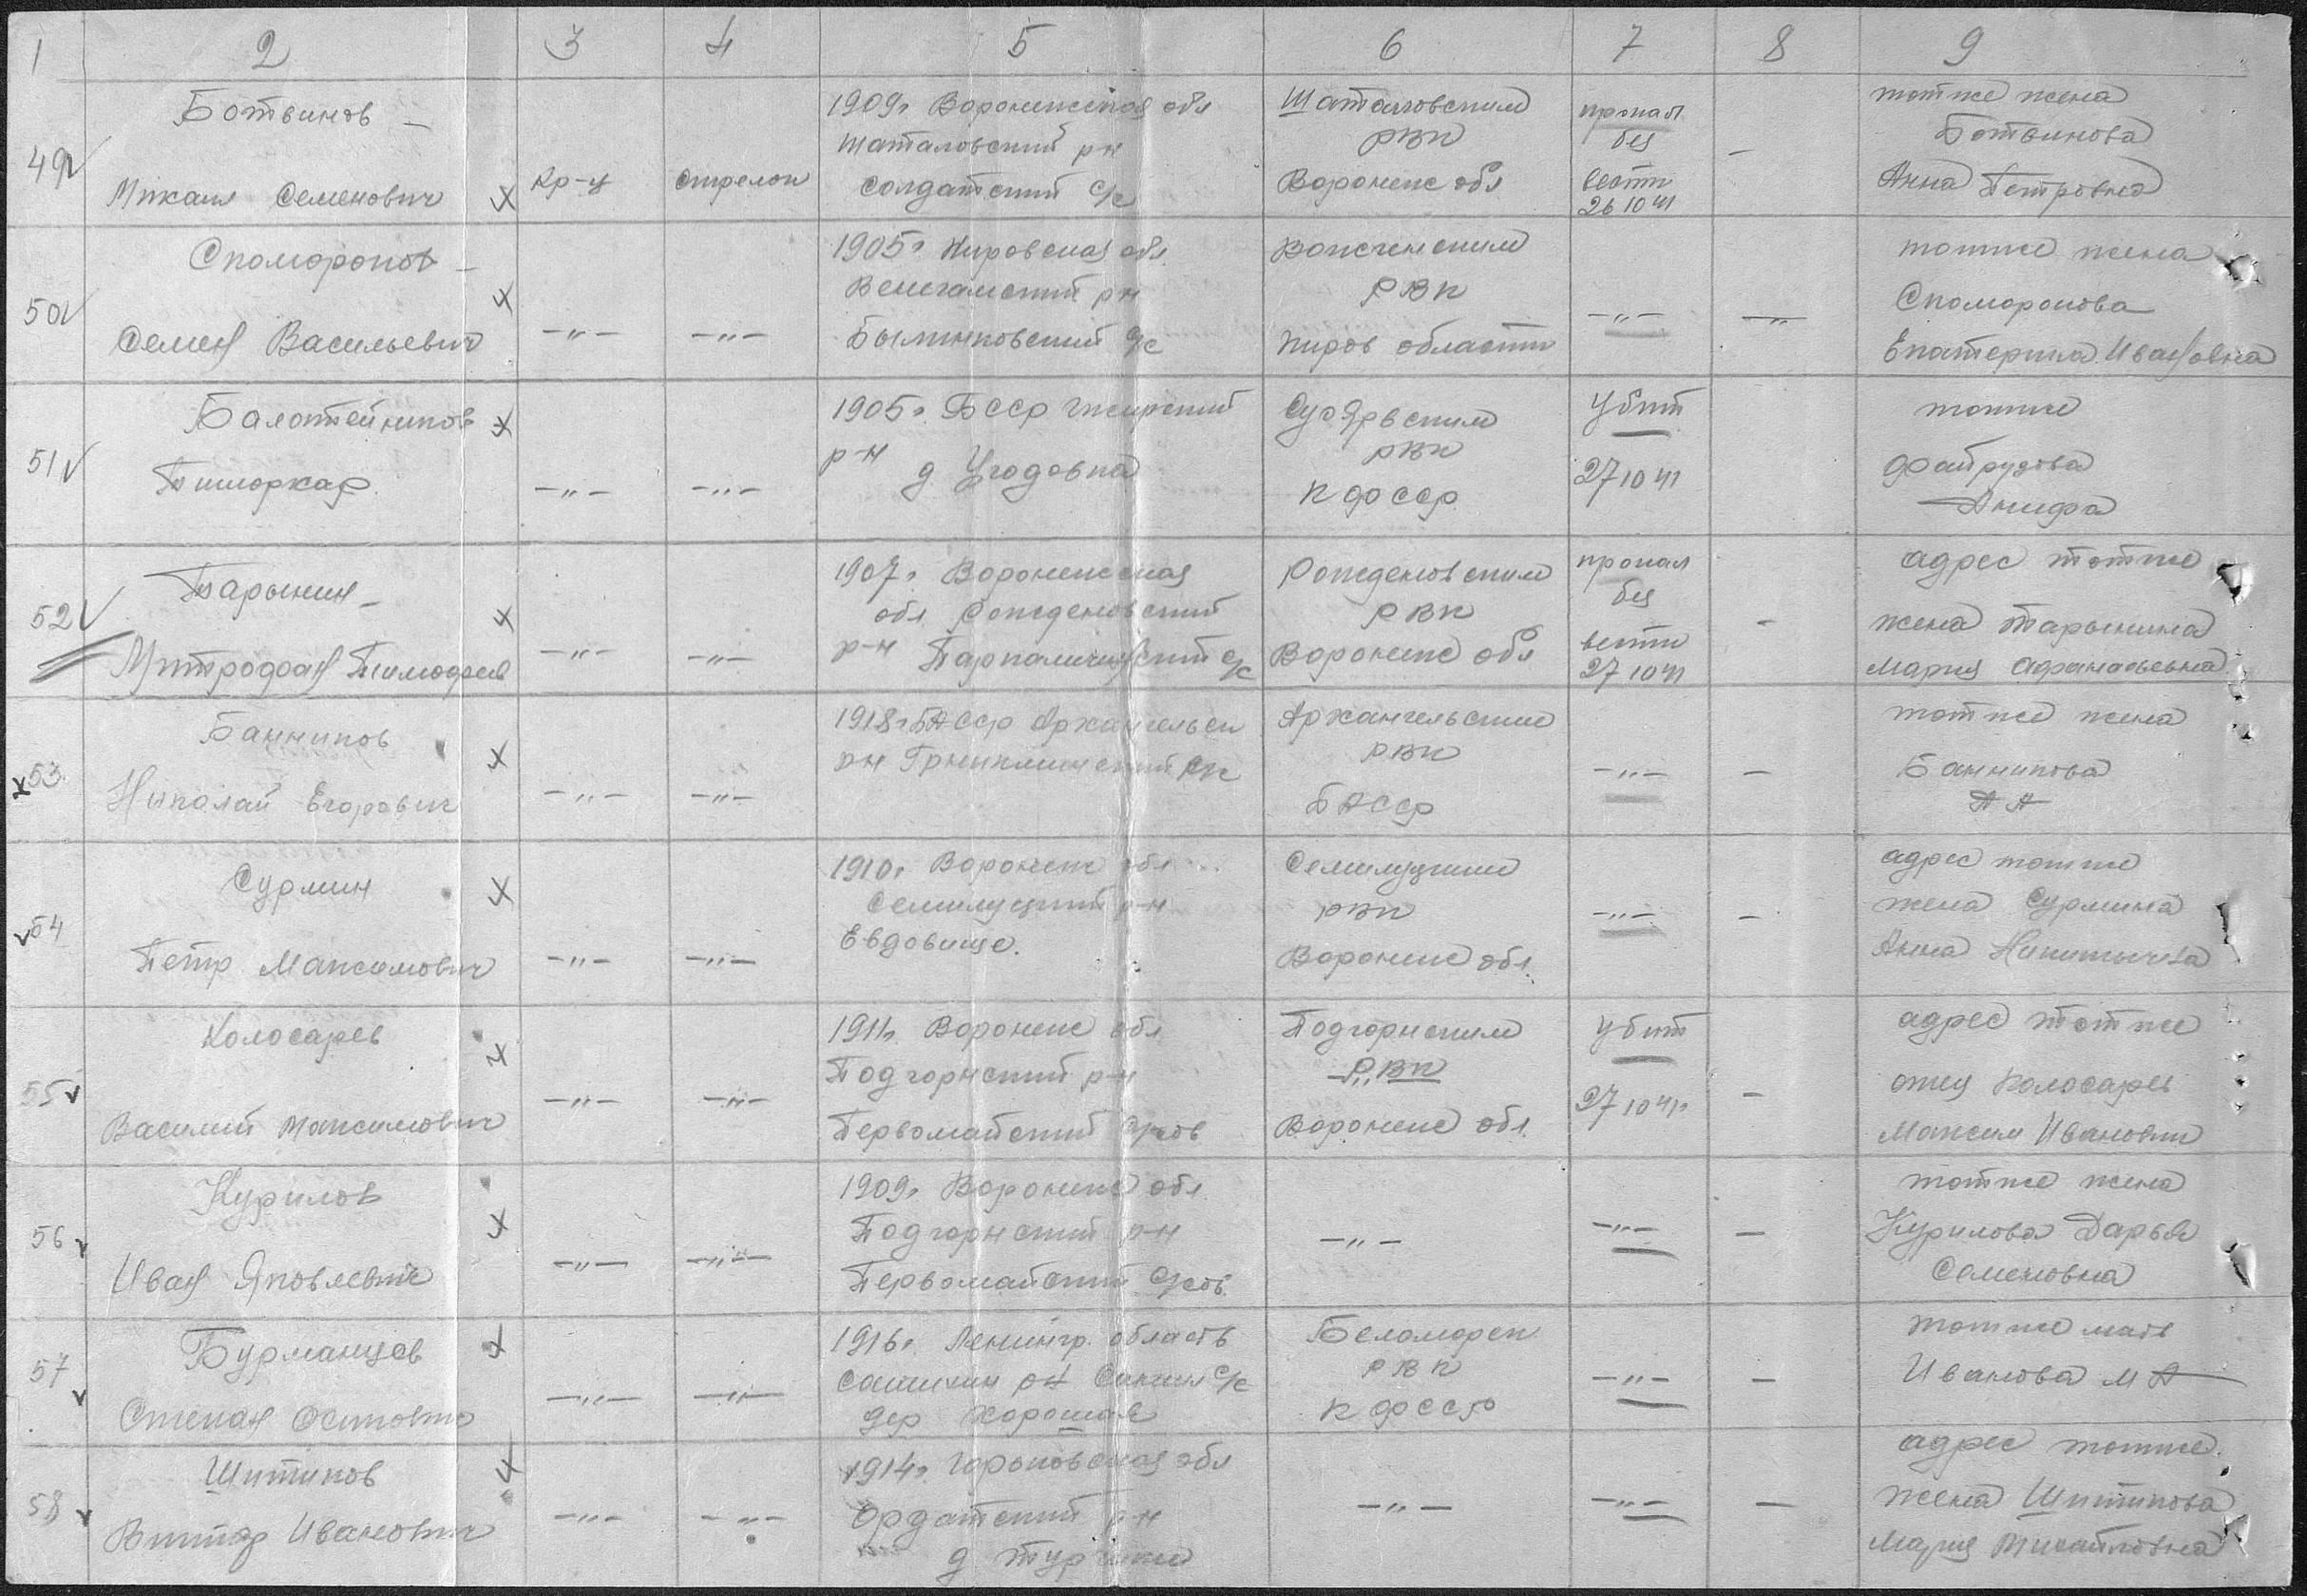 1 2 3 4 5 6 7 8 9
49
Ботвинов –
Михаил Семенович
кр-ц
стрелок
1909г Воронежская обл
Шаталовский р-н
Солдатский с/с
Шаталовским
РВК
Воронеж обл
пропал
без
вести
26 10 41
–
тотже жена
Ботвинова
Анна Петровна
50
Скоморохов –
Семен Васильевич
–"–
–"–
1905г Кировская обл
р-н
с/с
РВК
Киров области
–"–
–"–
тотже жена
Скоморохова
Екатерина Ивановна
51
–"–
–"–
1905г. БССР
р-н д
РВК
КФССР
Убит
27 10 41
тотже
Файрузова
52
Тарынин –
Митрофан Тимофеев
–"–
–"–
1907г. Воронежская
обл
р-н с/с
РВК
Воронеж обл
пропал
без
вести
27 10 41
–
адрес тотже
жена Тарынина
Мария Афанасьевна
53
Банников
Николай Егорович
–"–
–"–
1918г БАССР Архангельск
рн
Архангельским
РВК
БАССР
–"–
–
тотже жена
Банникова
А А
54
Сурмин
Петр Максимович
–"–
–"–
1910г. Воронеж обл
Семилуцкий р-н
Евдовище.
Семилуцким
РВК
Воронеж обл.
–"–
–
адрес тотже
жена Сурмина
Анна
55
Колосарев
Василий Максимович
–"–
–"–
1911г. Воронеж обл
Подгорнский р-н
Первомайский с/сов
Подгорнским
РВК
Воронеж обл.
Убит
27 10 41г
–
адрес тотже
отец Колосарев
Максим Иванович
56
Курилов
Иван Яковлевич
–"–
–"–
1909г. Воронеж обл
Подгорнский р-н
Первомайский с/сов.
–"–
–"–
–
тотже жена
Курилова Дарья
Семеновна
57
Бурманцев
Степан Осипович
–"–
–"–
1916г. Ленингр. область
рн с/с
дер
Беломорск
РВК
КФССР
–"–
–
тотже мать
Иванова М А
58
Шитиков
Виктор Иванович
–"–
–"–
1914г. Горьковская обл
Ордатский р-н
д
–"–
–"–
–
адрес тотже.
жена Шитикова
Мария Михайловна